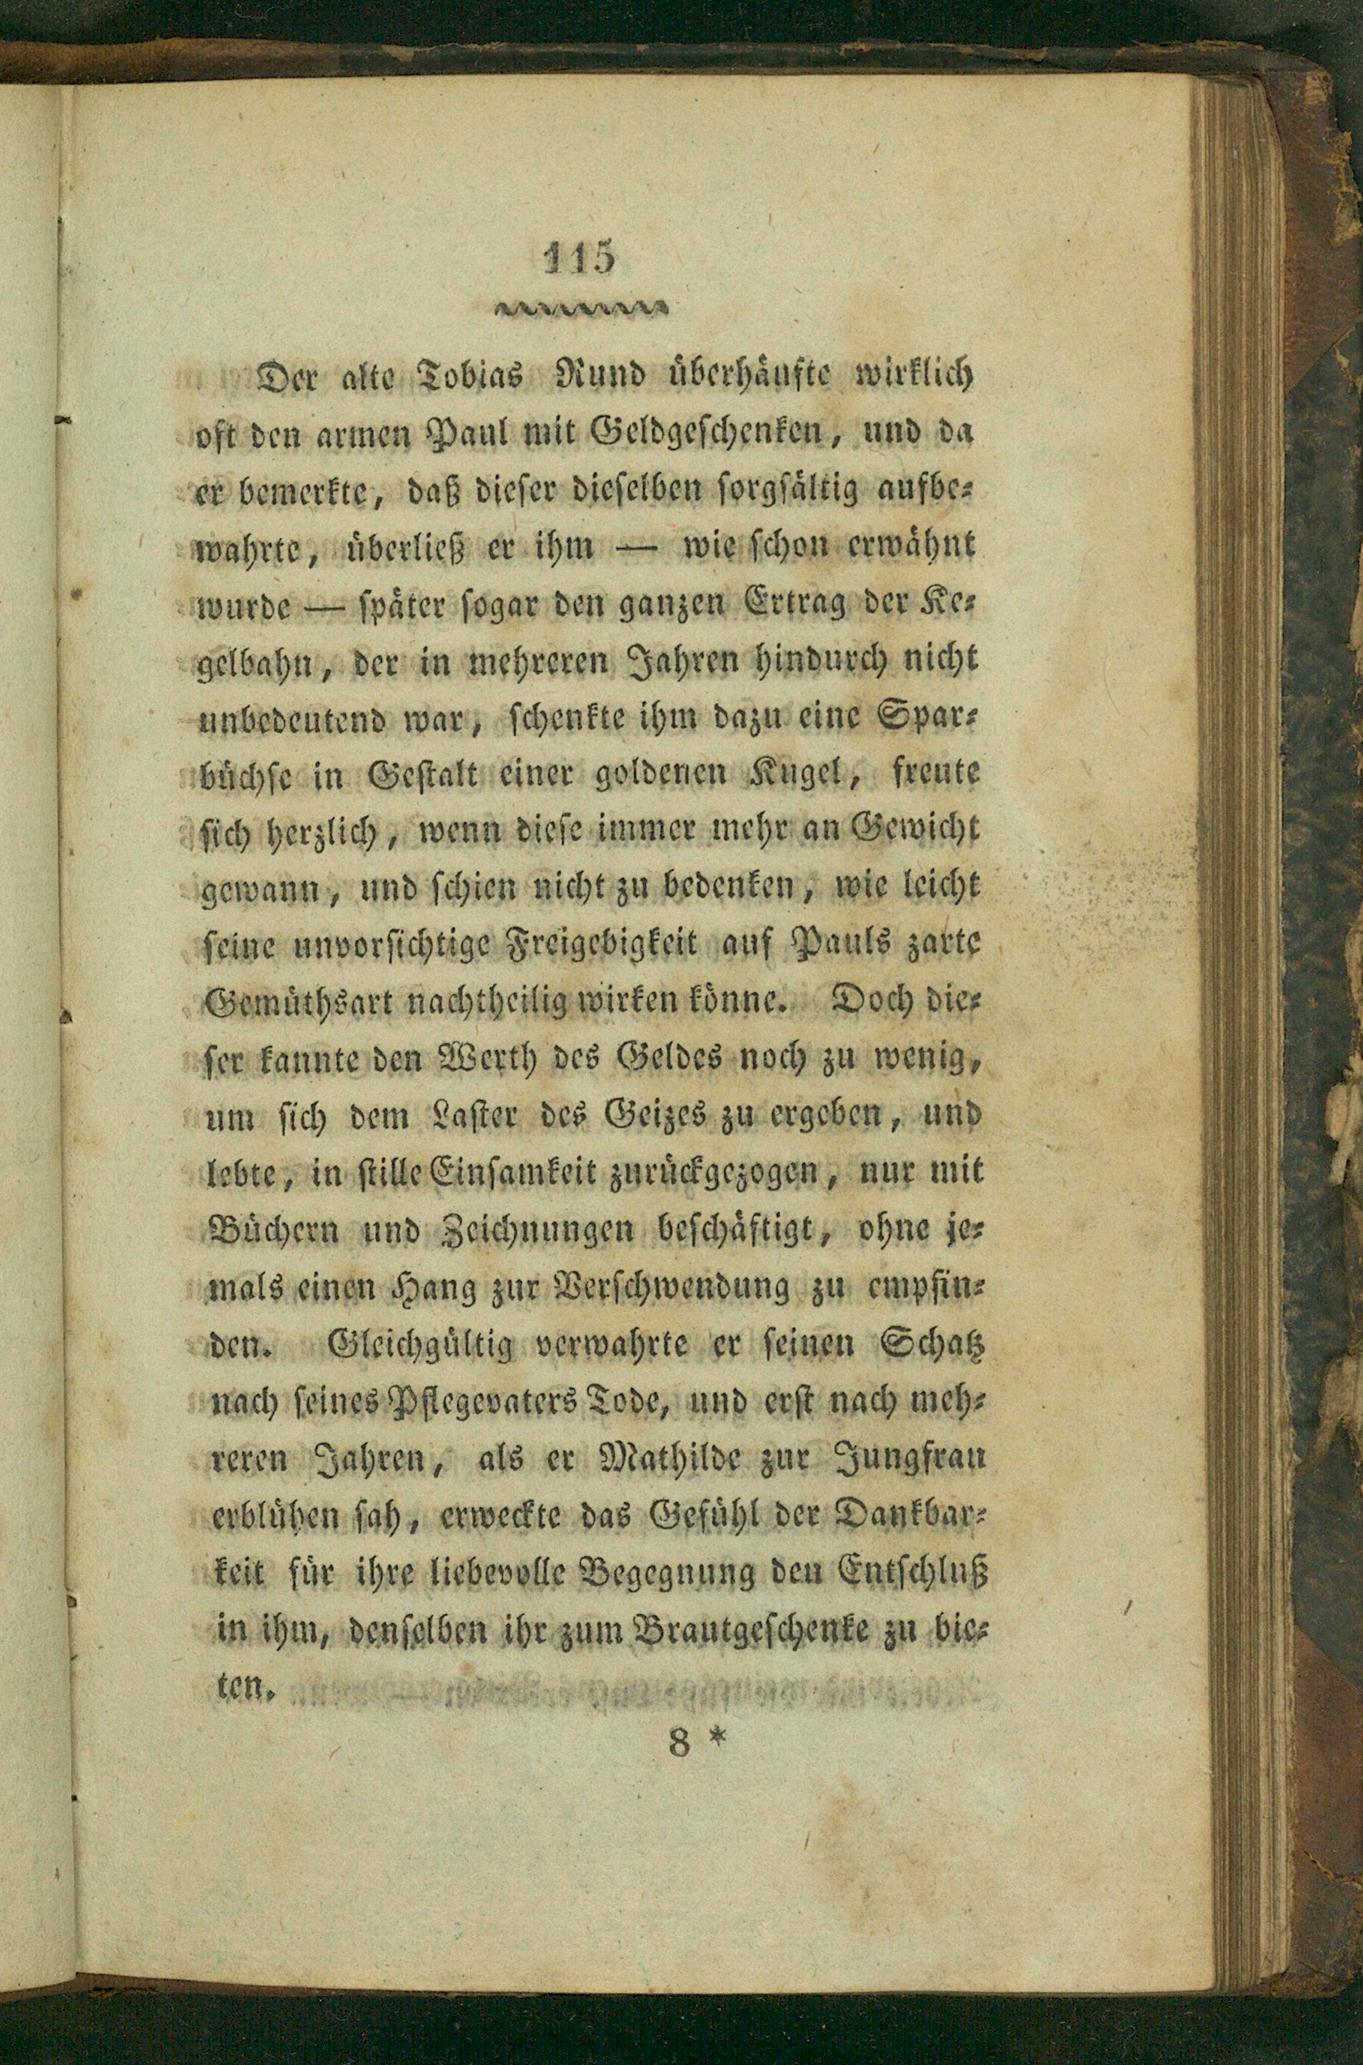 115
Der alte Tobias Rund überhäufte wirklich
oft den armen Paul mit Geldgeschenken, und da
er bemerkte, daß dieser dieselben sorgfältig aufbe-
wahrte, überließ er ihm — wie schon erwähnt
wurde — später sogar den ganzen Ertrag der Ke-
gelbahn, der in mehreren Jahren hindurch nicht
unbedeutend war, schenkte ihm dazu eine Spar-
büchse in Gestalt einer goldenen Kugel, freute
sich herzlich, wenn diese immer mehr an Gewicht
gewann, und schien nicht zu bedenken, wie leicht
seine unvorsichtige Freigebigkeit auf Pauls zarte
Gemüthsart nachtheilig wirken könne. Doch die-
ser kannte den Werth des Geldes noch zu wenig,
um sich dem Laster des Geizes zu ergeben, und
lebte, in stille Einsamkeit zurückgezogen, nur mit
Büchern und Zeichnungen beschäftigt, ohne je-
mals einen Hang zur Verschwendung zu empfin-
den. Gleichgültig verwahrte er seinen Schatz
nach seines Pflegevaters Tode, und erst nach meh-
reren Jahren, als er Mathilde zur Jungfrau
erblühen sah, erweckte das Gefühl der Dankbar-
keit für ihre liebevolle Begegnung den Entschluß
in ihm, denselben ihr zum Brautgeschenke zu bie-
ten.
8 *